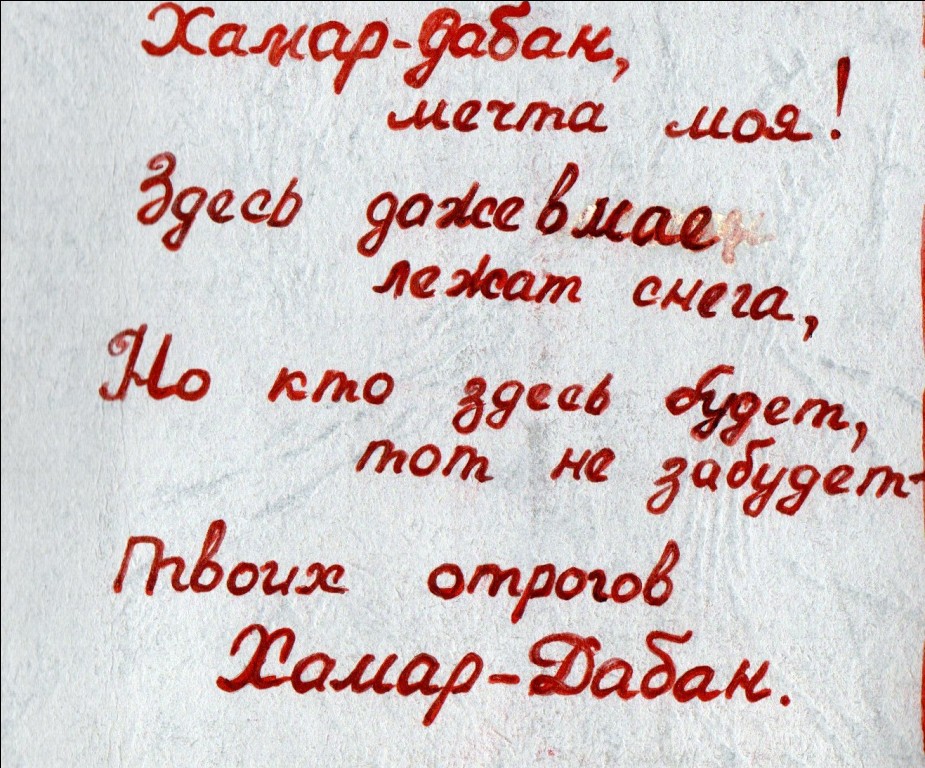 Хамар-дабан,
мечта моя!
Здесь даже в мае
лежат снега,
Но кто здесь будет,
тот не забудет-
Твоих отрогов
Хамар-Дабан.